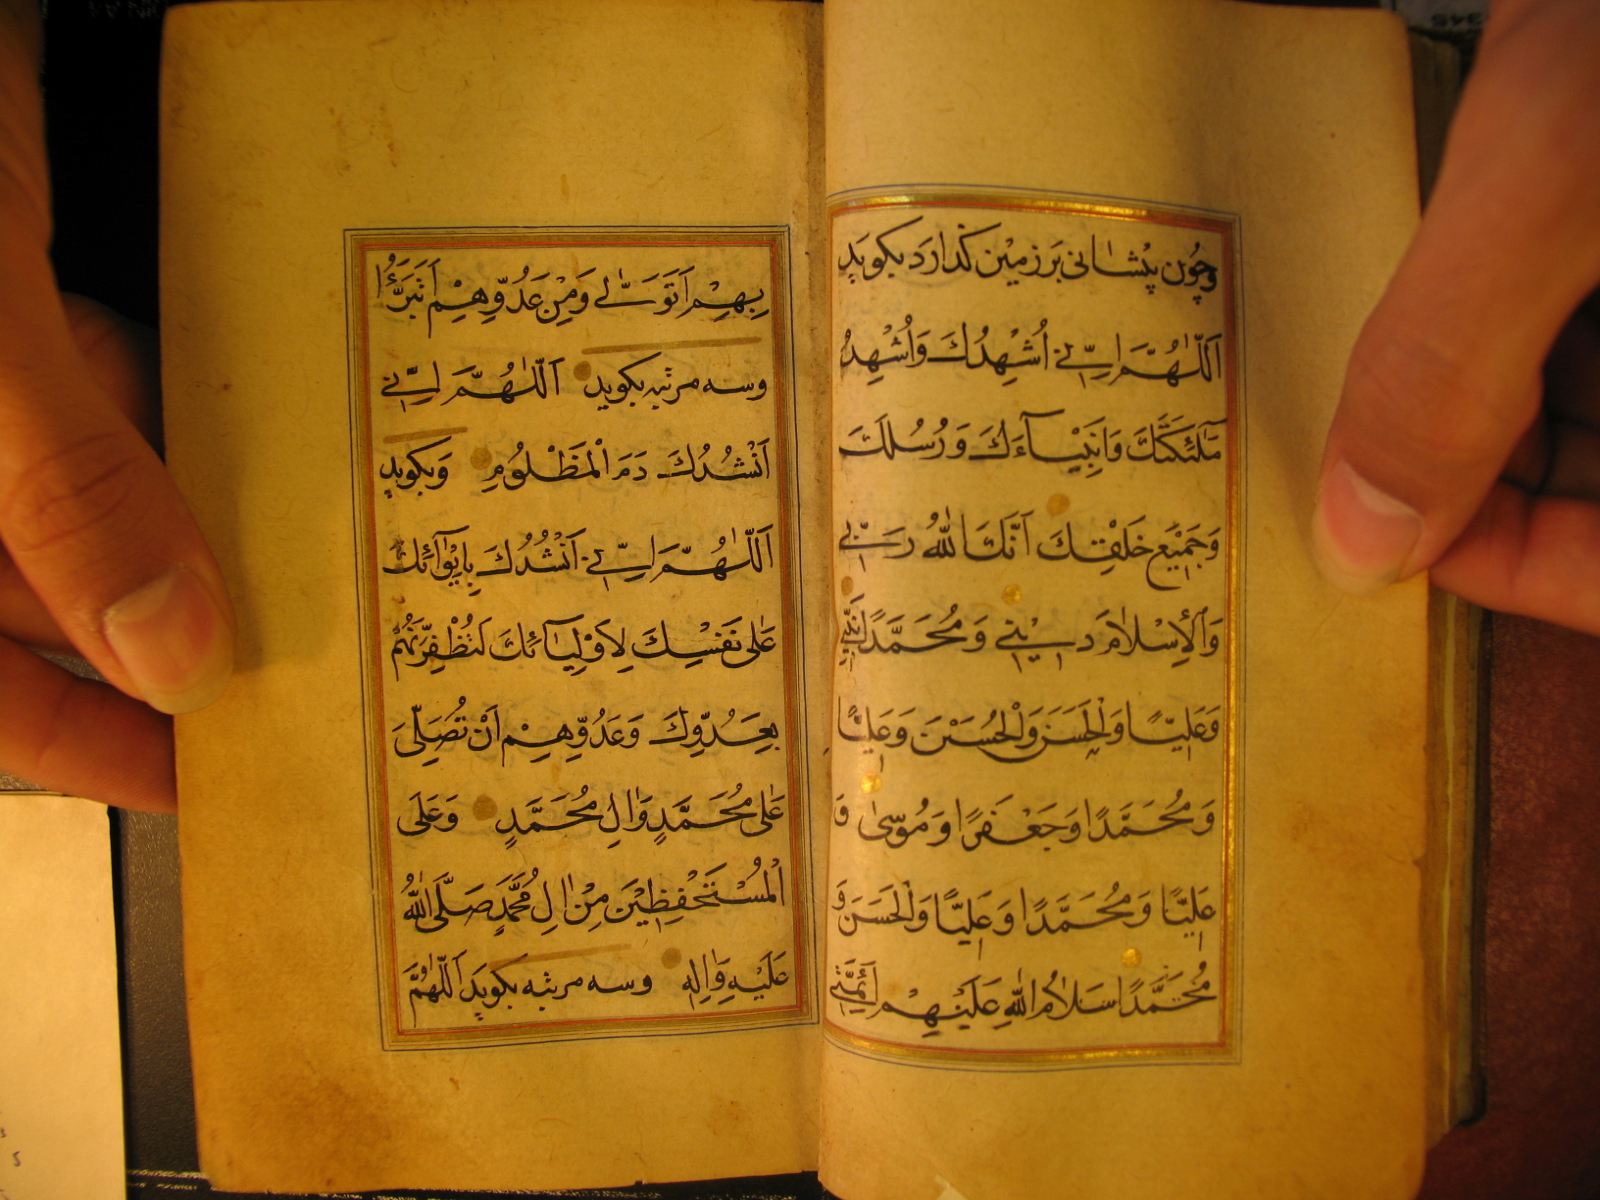 وچون پیشانی بر زمین گذارد بکوید
اَللّٰهُمَّ اِنِّي اُشْهِدُكَ وَاُشْهِدُ
مَلٰئِكَتَكَ وَاَنْبِيَآءَكَ وَرُسُلَكَ
وَجَمِيْعَ خَلْقِكَ اَنَّكَ اللهُ رَبِّي
وَالْاِسْلَامَ دِيْنِي وَمُحَمَّدًا نَبِيِّي
وَعَلِيًّا وَالْحَسَنَ وَالْحُسَيْنَ وَعَلِيًّا
وَمُحَمَّدًا وَجَعْفَرًا وَمُوسٰى وَ
عَلِيًّا وَمُحَمَّدًا وَعَلِيًّا وَالْحَسَنَ وَ
مُحَمَّدًا سَلَامُ اللهِ عَلَيْهِمْ اَئِمَّتِي
بِهِمْ اَتَوَلّٰي وَمِنْ عَدُوِّهِمْ اَتَبَرَّؤُا
وسه مرتبه بکوید اَللّٰهُمَّ اِنِّي
اَنْشُدُكَ دَمَ الْمَظْلُومِ وبکوید
اَللّٰهُمَّ اِنِّي اَنْشُدُكَ بِاِيْوَآئِكَ
عَلٰى نَفْسِكَ لِاَوْلِيَآئِكَ لَتُظْفِرَنَّهُمْ
بِعَدُوِّكَ وَعَدُوِّهِمْ اَنْ تُصَلِّيَ
عَلٰى مُحَمَّدٍ وَاٰلِ مُحَمَّدٍ وَعَلَى
الْمُسْتَحْفِظِيْنَ مِنْ اٰلِ مُحَمَّدٍ صَلَّى اللهُ
عَلَيْهِ وَاٰلِهِ وسه مرتبه بکوید اَللّٰهُمَّ